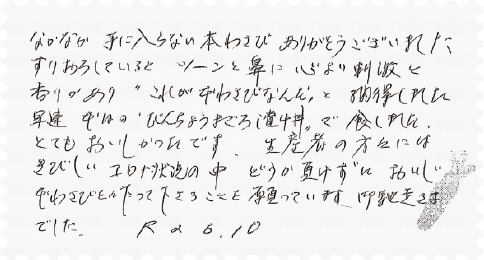 なかなか 手に入らない本わさび ありがとうございました、
すりおろしていると ツーンと鼻に 心よい刺激と
香りがあり "これが本わさびなんだ"と 納得しました
早速 "びんちょうまぐろ漬け丼"で食しました、
とてもおいしかったです、 生産者の方々には
きびしい コロナ状況の中 どうか負けずに おいしい
本わさびを作って下さることを願っています、御馳走さま
でした。 R 2 6.10